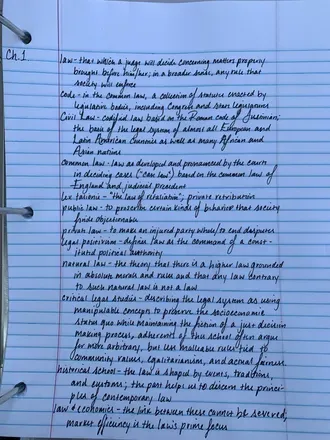 Ch. 1
law - that which a judge will decide concerning matters properly
brought before him/her; in a broader sense, any rule that
society will enforce
code - in the common law, a collection of statutes enacted by
legislative bodies, including Congress and state legislatures
Civil Law - codified law based on the Roman code of Justinian;
the basis of the legal system of almost all European and
Latin American countries as well as many African and
Asian nations
common law - law as developed and pronounced by the courts
in deciding cases ("case law") based on the common law of
England and judicial precedent
lex talionis - "the law of retaliation"; private retribution
public law - to proscribe certain kinds of behavior that society
finds objectionable
private law - to make an injured party whole/to end disputes
legal positivism - defines law as the command of a const-
ituted political authority
natural law - the theory that there is a higher law grounded
in absolute morals and rules and that any law contrary
to such natural law is not a law
critical legal studies - describing the legal system as using
manipulable concepts to preserve the socioeconomic
status quo while maintaining the fiction of a just decision
making process, adherents of this school often argue
for more arbitrary, but less malleable rules tied to
community values, egalitarianism, and actual fairness
historical school - the law is shaped by events, traditions,
and customs; the past helps us to discern the princi-
ples of contemporary law
law + economics - the link between these cannot be severed;
market efficiency is the law's prime focus